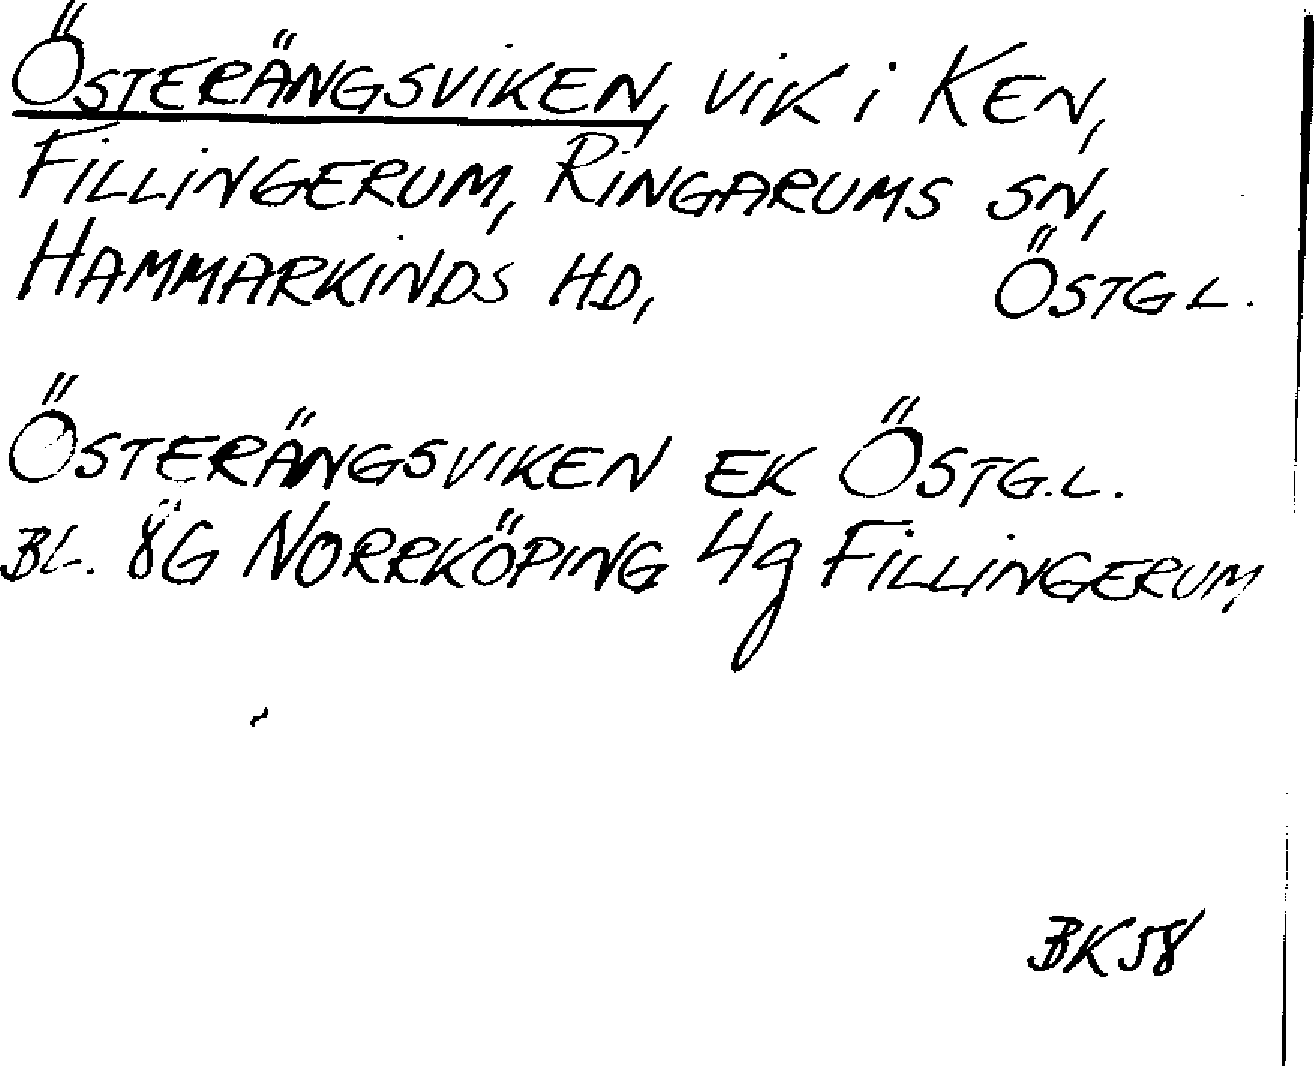 ÖSTERÄNGSVIKEN, VIK i KEN,
FILLINGERUM, RINGARUMS SN,
HAMMARKINDS HD, ÖSTGL.
ÖSTERÄNGSVIKEN EK ÖSTG.L.
BL. 8G NORRKÖPING 4g FILLINGERUM
BK58